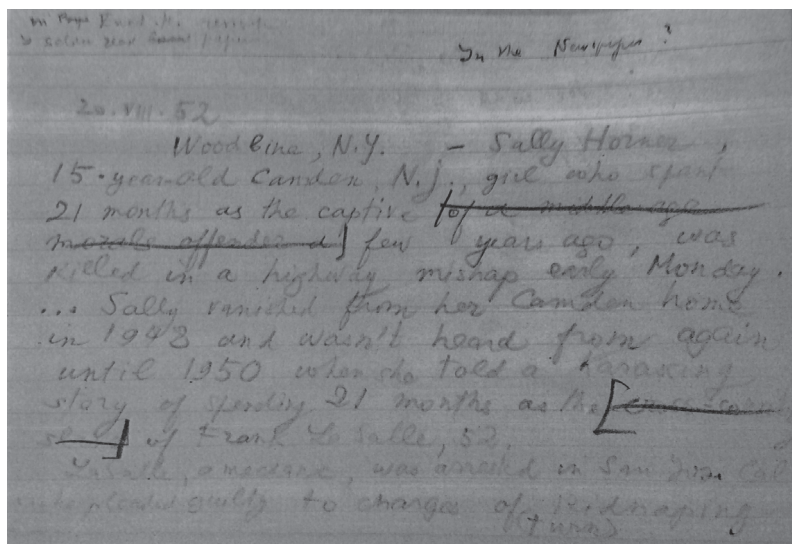 In the Newspaper?
20.VIII.52
Woodbine, N.Y. – Sally Horner,
15-year-old Camden, N.J., girl who spent
21 months as the captive [of a middle-age
morals offender a] few years ago, was
killed in a highway mishap early Monday.
... Sally vanished from her Camden home
in 1948 and wasn't heard from again
until 1950 when she told a harassing
story of spending 21 months as the [cross-country
slave] of Frank La Salle, 52.
LaSalle, a mechanic, was arrested in San Jose, Cal
he pleaded guilty to charges of kidnaping
(turn)